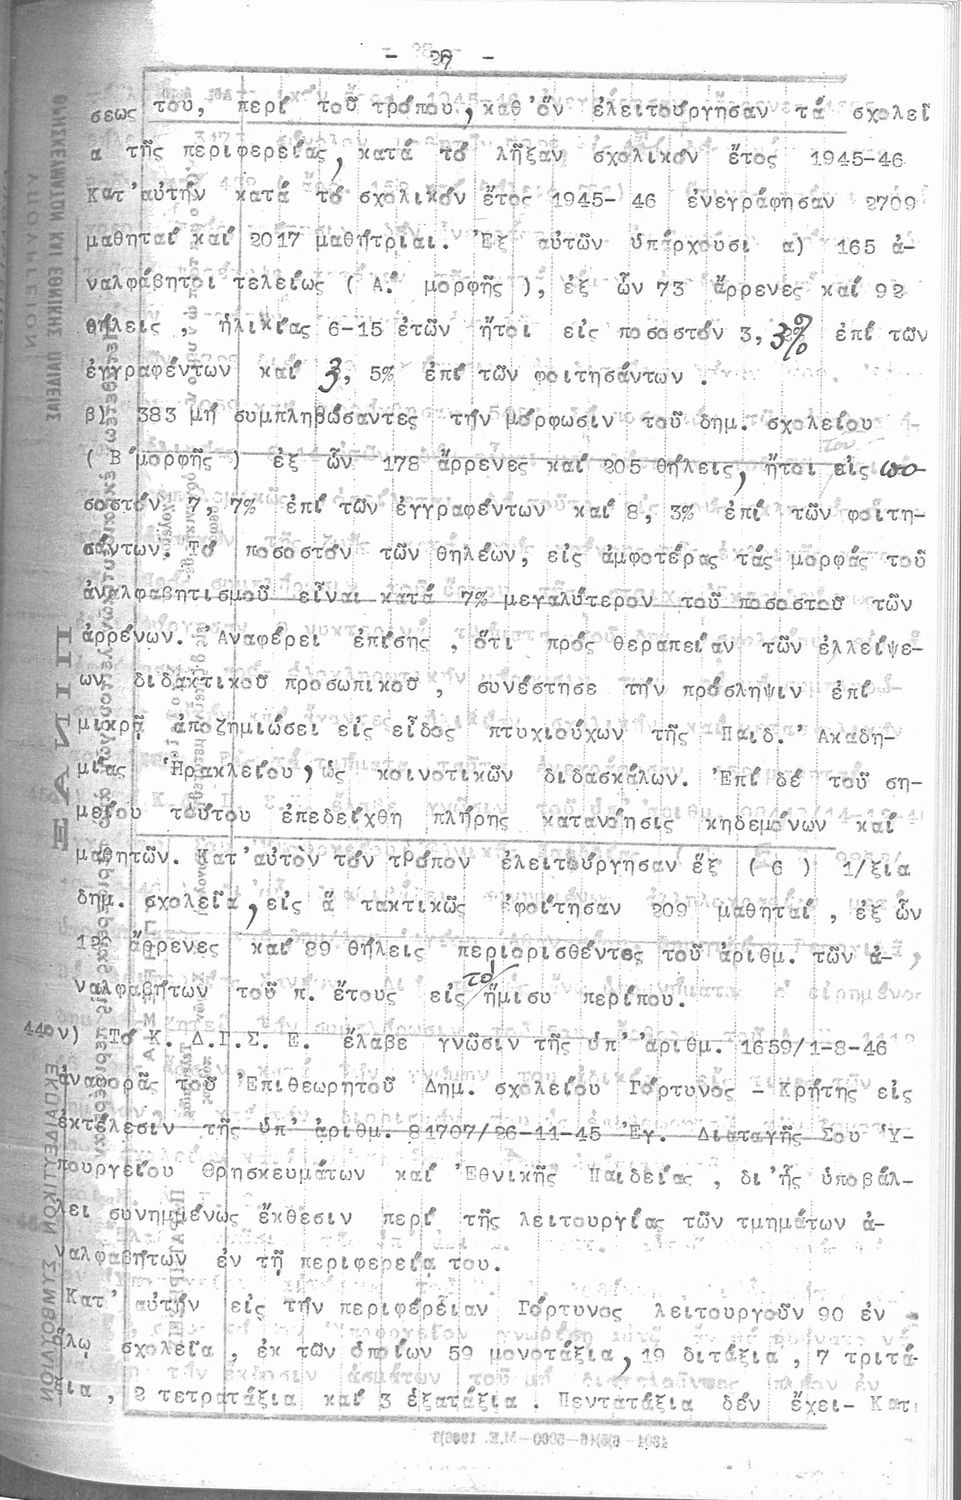 - 27 -
σεως του, περί τοῦ τρόπου, καθ'ὅν ἐλειτούργησαν τά σχολεῖ
α τῆς περιφερείας, κατά τό λῆξαν σχολικόν ἔτος 1945-46
Κατ'αὐτήν κατά τό σχολικόν ἔτος 1945- 46 ἐνεγράφησαν 2709
μαθηταί καί 2017 μαθήτριαι. Ἐξ αὐτῶν ὑπάρχουσι α) 165 ἀ-
ναλφάβητοι τελείως ( Α. μορφῆς ), ἐξ ὧν 73 ἄρρενες καί 92
θήλεις , ἡλικίας 6-15 ἐτῶν ἤτοι εἰς ποσοστόν 3, % ἐπί τῶν
ἐγγραφέντων καί 3, 5% ἐπί τῶν φοιτησάντων .
β) 383 μή συμπληρώσαντες τήν μόρφωσιν τοῦ δημ. σχολείου
( Β΄μορφῆς ) ἐξ ὧν 178 ἄρρενες καί 205 θήλεις, ἤτοι εἰς πο-
σοστόν 7, 7% ἐπί τῶν ἐγγραφέντων καί 8, 3% ἐπί τῶν φοιτη-
σάντων. Τό ποσοστόν τῶν θηλέων, εἰς ἀμφοτέρας τάς μορφάς τοῦ
ἀναλφαβητισμοῦ εἶναι κατά 7% μεγαλύτερον τοῦ ποσοστοῦ τῶν
ἀρρένων. Ἀναφέρει ἐπίσης , ὅτι πρός θεραπείαν τῶν ἐλλείψε-
ων διδακτικοῦ προσωπικοῦ , συνέστησε τήν πρόσληψιν ἐπί
μικρᾷ ἀποζημιώσει εἰς εἶδος πτυχιούχων τῆς Παιδ. Ἀκαδη-
μίας Ἡρακλείου, ὡς κοινοτικῶν διδασκάλων. Ἐπί δέ τοῦ ση-
μείου τούτου ἐπεδείχθη πλήρης κατανόησις κηδεμόνων καί
μαθητῶν. Κατ'αὐτὸν τόν τρόπον ἐλειτούργησαν ἕξ ( 6 ) 1/ξια
δημ. σχολεῖα, εἰς ἅ τακτικῶς ἐφοίτησαν 209 μαθηταί , ἐξ ὧν
ἄρρενες καί 89 θήλεις περιορισθέντος τοῦ ἀριθμ. τῶν ἀ-
ναλφαβήτων τοῦ π. ἔτους εἰς τό ἥμισυ περίπου.
44ον) Τό Κ. Δ.Γ.Σ. Ε. ἔλαβε γνῶσιν τῆς ὑπ' ἀριθμ. 1659/1-8-46
ἀναφορᾶς τοῦ Ἐπιθεωρητοῦ Δημ. σχολείου Γόρτυνος - Κρήτης εἰς
ἐκτέλεσιν τῆς ὑπ' ἀριθμ. 81707/26-11-45 Ἐγ. Διαταγῆς Σου Ὑ-
πουργείου Θρησκευμάτων καί Ἐθνικῆς Παιδείας , δι'ἧς ὑποβάλ-
λει συνημμένως ἔκθεσιν περί τῆς λειτουργίας τῶν τμημάτων ἀ-
ναλφαβήτων ἐν τῇ περιφερείᾳ του.
Κατ' αὐτήν εἰς τήν περιφέρειαν Γόρτυνος λειτουργοῦν 90 ἐν
ὅλῳ σχολεῖα , ἐκ τῶν ὁποίων 59 μονοτάξια, 19 διτάξια , 7 τριτά-
ξια , 2 τετρατάξια καί 3 ἑξατάξια . Πεντατάξια δέν ἔχει- Κατ